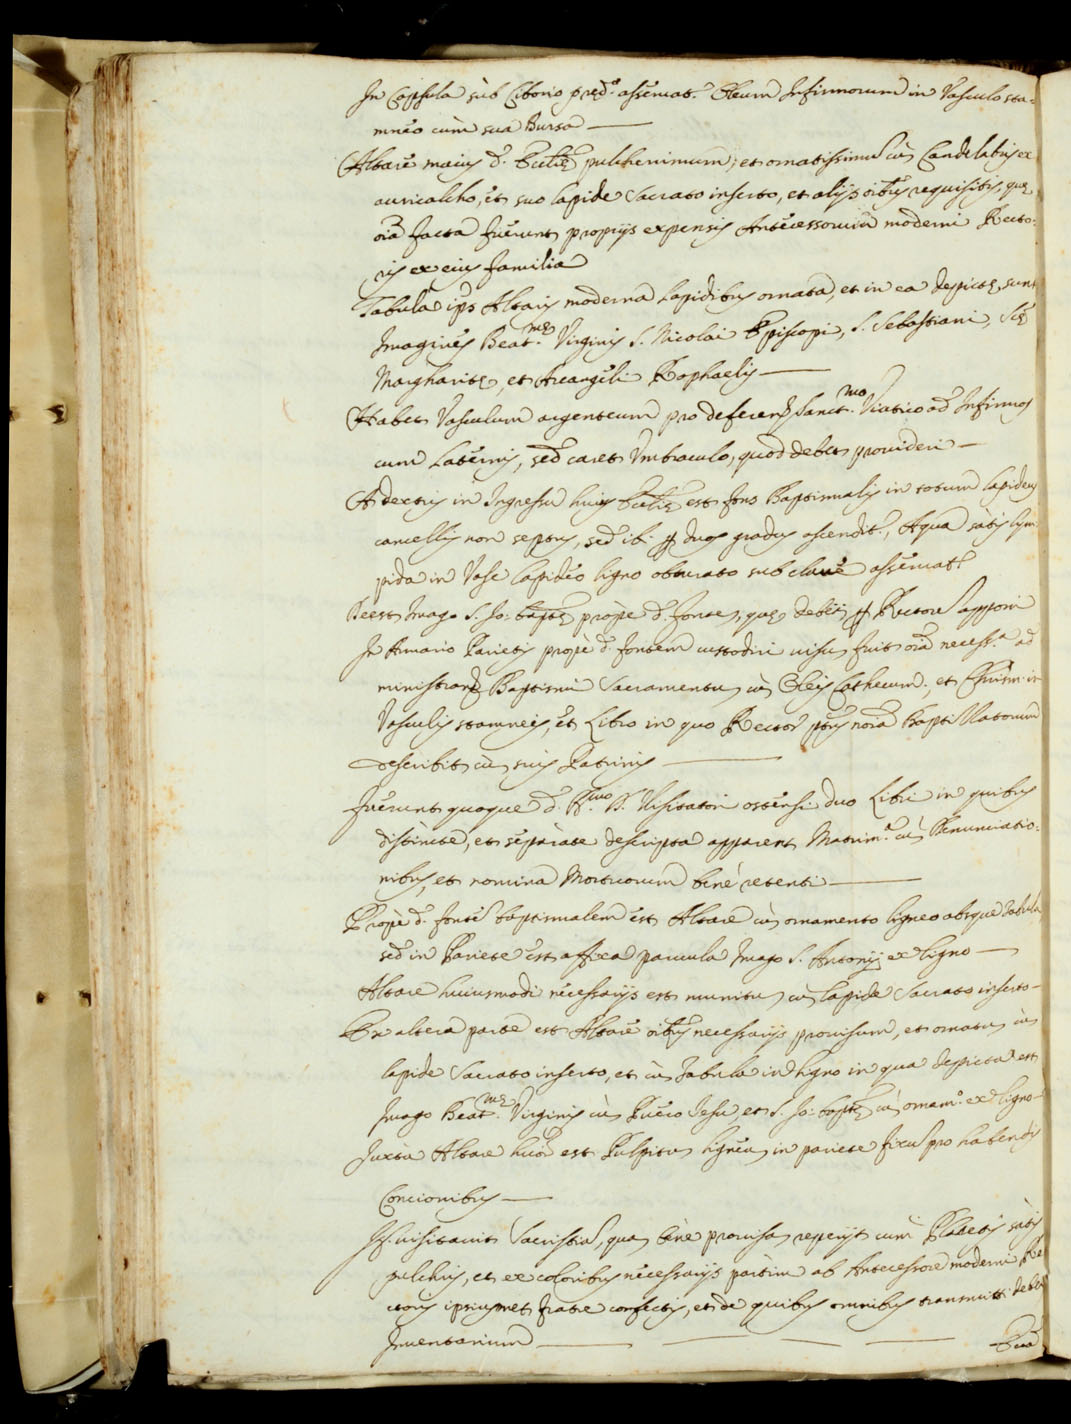 In Capsula sub Ciborio pred.º asseruat.r Oleum Infirmorum in Vasculo sta=
mneo cum sua Bursa —
Altare maius d.º Ecclię pulcherrimum, et ornatissimu cù Candelabris ex
auricalcho, et suo lapide Sacrato inserto, et alijs oibus requisitis, quę
oia facta fuerunt proprijs expensis Antecessorum moderni Recto-
ris ex eius familia
Tabula ips Altaris moderna lapidibus ornata, et in ea depictę sunt
Imagines Beat.mę Virginis S. Nicolai Episcopi, S. Sebastiani, Scę
Margharitę, et Arcangeli Raphaelis —
Habet Vasculum argenteum pro deferend Sanct.mo Viatico ad Infirmos
cum Laternis, sed caret Umbraculo, quod debet prouideri —
A dextris in Ingressu huius Ecclię est fons Baptismalis in totum lapideus
cancellis non septus, sed ibi p duos gradus ascendit.r, Aqua satis lym
pida in Vase lapideo ligno obserato sub claue asseruat.r
Deest Imago S. Jo: Baptę prope d. fonte, quę debet p Rectore apponi
In Armario Parietis prope d. fontem custodiri uisu fuit oia necess.a ad
ministrand Baptismi Sacramentu, cù Oleis Cathecum., et Chrism. in
Vasculis stamneis, et Libro in quo Rector noia Baptizatorum
describit cù suis Patrinis —
Fuerunt quoque d. R.mo D. Visitatori ostensi duo Libri in quibus
distincte, et separate descripta apparent Matrim.a cù Denunciatio-
nibus, et nomina Mortuorum bene retenti —
Prope d. fonte baptismalem est Altare cù ornamento ligneo absque Tabula,
sed in Pariete est affixa paruula Imago S. Antonij ex ligno —
Altare huiusmodi necessarijs est munitu, cù lapide Sacrato inserto —
Ex altera parte est Altare oibus necessarijs prouisum, et ornatu, cù
lapide Sacrato inserto, et cù Tabula in ligno in qua depicta est
Imago Beat.mę Virginis cù Puero Iesu, et S. Jo: Baptę cù ornam.o ex ligno —
Iuxta Altare est Pulpitu ligneu in pariete fixu pro habendis
Concionibus —
visitauit Sacristia, qua bene prouisa reperijt cum Planetis satis
pulchris, et ex coloribus necessarijs partim ab Antecessore moderni Re
ctoris ipsiusmet fratre confectis, et de quibus omnibus transmitti debet
Inuentarium —